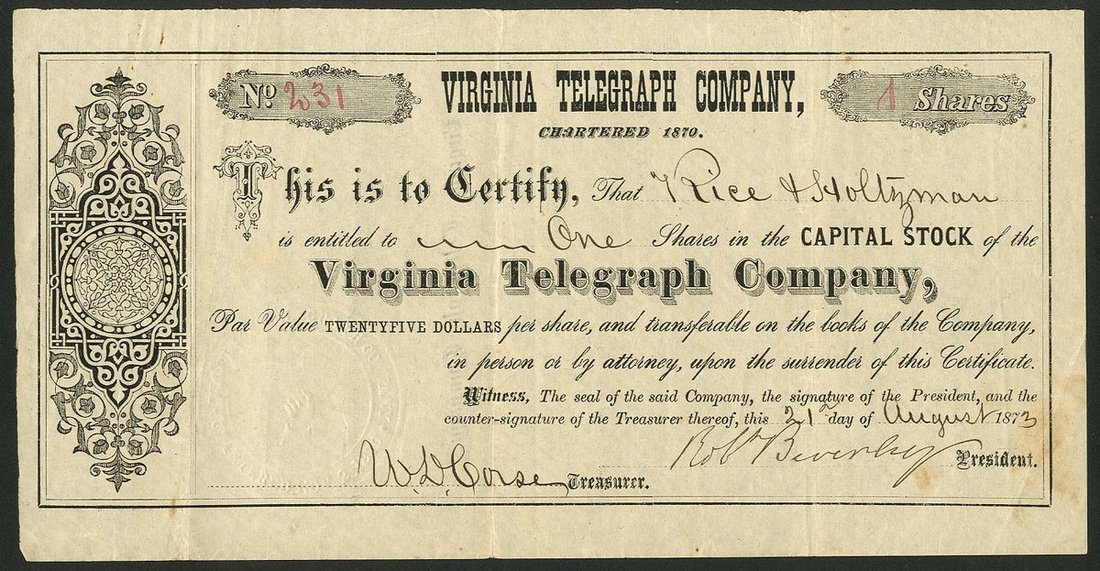 No. 231
VIRGINIA TELEGRAPH COMPANY,
1 Shares
CHARTERED 1870.
This is to Certify, That Rice & Holtzman
is entitled to One Shares in the CAPITAL STOCK of the
Virginia Telegraph Company,
Par Value TWENTYFIVE DOLLARS per share, and transferable on the books of the Company,
in person or by attorney, upon the surrender of this Certificate.
Witness, The seal of the said Company, the signature of the President, and the
counter-signature of the Treasurer thereof, this 21st day of August 1873
Robt Beverley President.
W. D. Corse Treasurer.